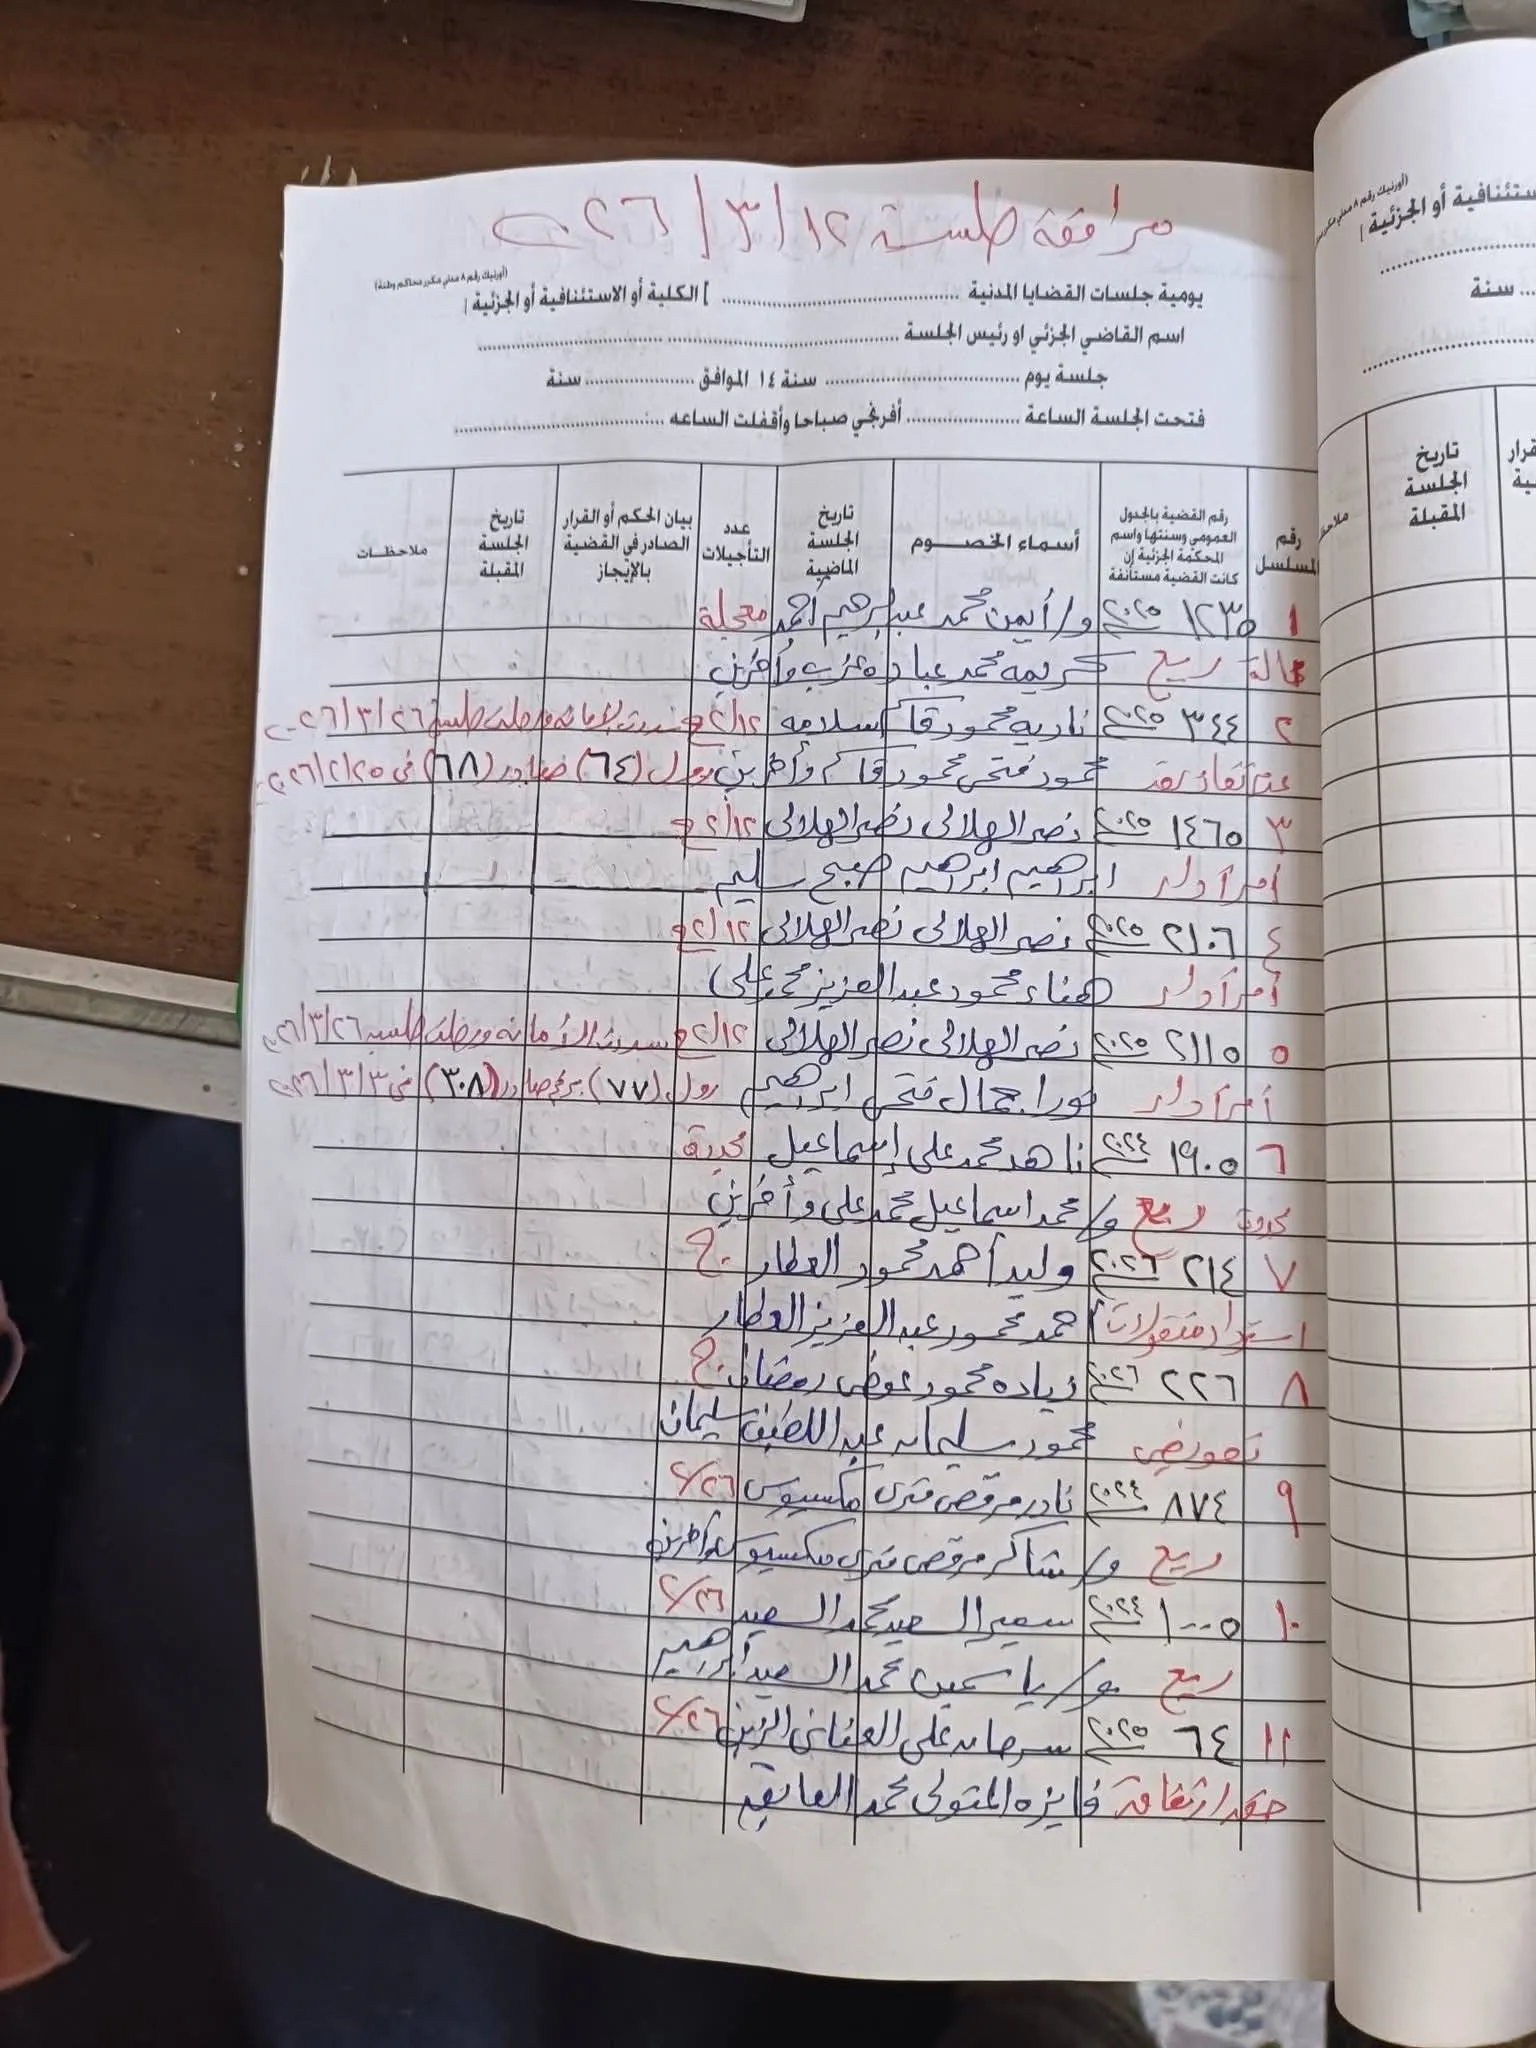 مرافعة جلسة ١٢/٣/٢٠٢٦
(أورنيك رقم ٨ مدني مكرر محاكم وطنية)
يومية جلسات القضايا المدنية .......... ] الكلية أو الاستئنافية أو الجزئية [
اسم القاضي الجزئي او رئيس الجلسة ..........
جلسة يوم .......... سنة ١٤ الموافق .......... سنة
فتحت الجلسة الساعة .......... أفرنجي صباحا وأقفلت الساعه ..........
رقم المسلسل
رقم القضية بالجدول العمومي وسنتها واسم المحكمة الجزئية إن كانت القضية مستأنفة
أسماء الخصوم
تاريخ الجلسة الماضية
عدد التأجيلات
بيان الحكم أو القرار الصادر في القضية بالإيجاز
تاريخ الجلسة المقبلة
ملاحظات
١ ١٢٣٥ ٢٠٢٥ و/ أيمن محمد عبد ابراهيم أحمد معجلة
ريع كريمه محمد عباده عزب وأخرين
٢ ٣٤٤ ٢٠٢٥ ناديه محمود سلامه ١٢/٢ جلسة ٢٦/٣/٢٠٢٦
عدم نفاذ محمود فتحى محمود وأخرين رول (٦٤) صادر (٦٨) فى ٢٥/٢/٢٠٢٦
٣ ١٤٦٥ ٢٠٢٥ نصر الهلالى نصر الهلالى ١٢/٢
أمر أداء ابراهيم ابراهيم صبح سليم
٤ ٢١٠٦ ٢٠٢٥ نصر الهلالى نصر الهلالى ١٢/٢
أمر أداء هناء محمود عبد العزيز محمد على
٥ ٢١١٥ ٢٠٢٥ نصر الهلالى نصر الهلالى ١٢/٢ سددت الأمانه وردت جلسه ٢٦/٣/٢٠٢٦
أمر أداء نورا جمال فتحى ابراهيم رول (٧٧) برقم صادر (٣٠٨) فى ٣/٣/٢٠٢٦
٦ ١٩٠٥ ٢٠٢٤ ناهد محمد على إسماعيل مجددة
مجددة ريع و/ محمد اسماعيل محمد على وأخرين
٧ ٢١٤ ٢٠٢٦ وليد أحمد محمود العطار ج.
استرداد منقولات أحمد محمود عبد العزيز العطار
٨ ٢٢٦ ٢٠٢٦ زياده محمود عوض رمضان ج.
تعويض محمود سليمان عبد اللطيف سليمان
٩ ٨٧٤ ٢٠٢٤ نادر مرقص مترى مكسيموس ٢٦/٢
ريع و/ شاكر مرقص مترى مكسيموس وأخرين
١٠ ١٠٠٥ ٢٠٢٤ سمير السعيد محمد السعيد ٢٦/٢
ريع و/ ياسمين محمد السعيد ابراهيم
١١ ٦٤ ٢٠٢٥ سرحان على العنانى الزين ٢٦/٢
حق ارتفاق فايزه المتولى محمد
تاريخ الجلسة المقبلة